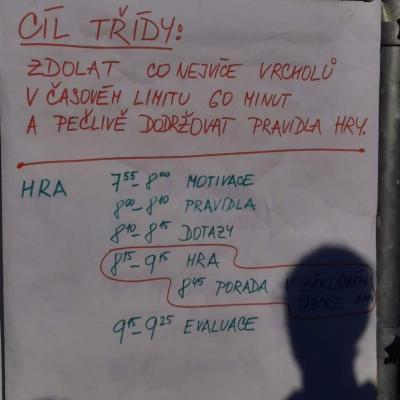 CÍL TŘÍDY:
ZDOLAT CO NEJVÍCE VRCHOLŮ
V ČASOVÉM LIMITU 60 MINUT
A PEČLIVĚ DODRŽOVAT PRAVIDLA HRY.
HRA 7⁵⁵-8⁰⁰ MOTIVACE
8⁰⁰-8¹⁰ PRAVIDLA
8¹⁰-8¹⁵ DOTAZY
8¹⁵-9¹⁵ HRA
8⁴⁵ PORADA V ZÁKLADNÍM
TÁBOŘE
9¹⁵-9²⁵ EVALUACE